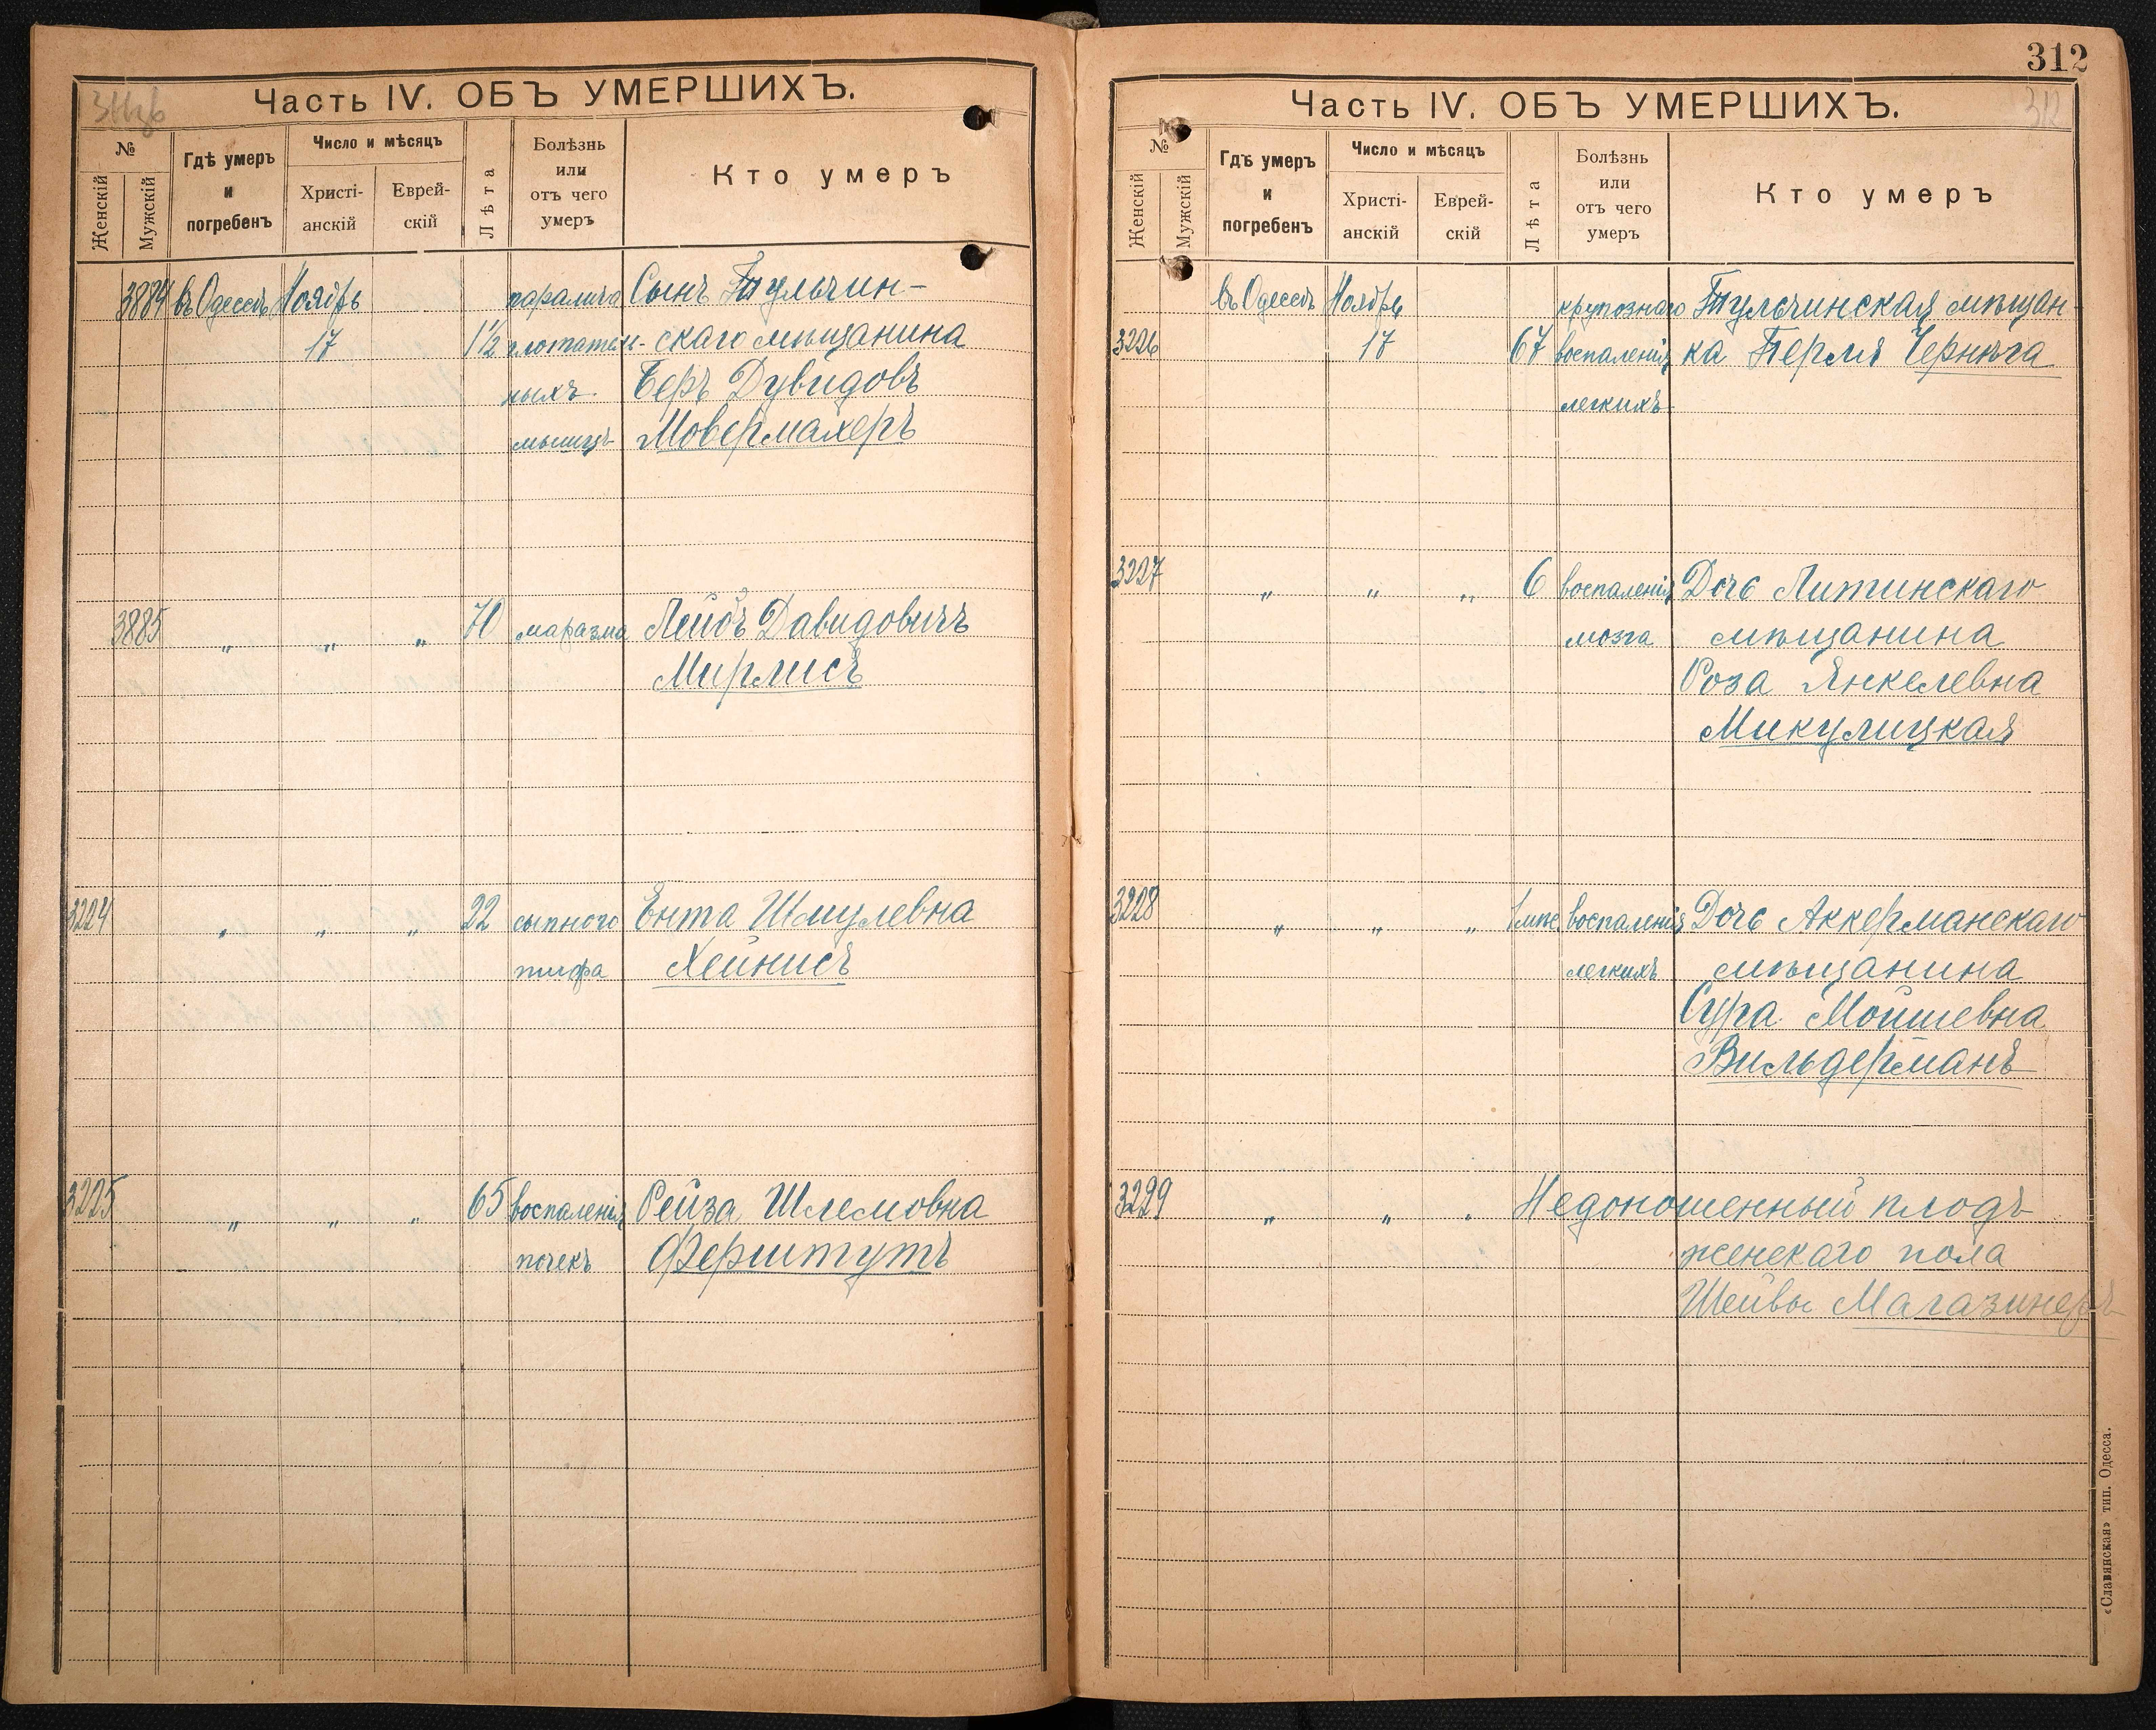 Часть IV. ОБЪ УМЕРШИХЪ.
№
Женскій
Мужскій
Гдѣ умеръ
и
погребенъ
Число и мѣсяцъ
Христі-
анскій
Еврей-
скій
Лѣта
Болѣзнь
или
отъ чего
умеръ
Кто умеръ
3884 въ Одессѣ Ноябрь паралича Сынъ Тульчин-
17 1½ глотатель- скаго мѣщанина
ныхъ Беръ Дувидовъ
мышцъ Мовермахеръ
3885 " " " 70 маразма Лейбъ Давидовичъ
Мирлисъ
3224 " " " 22 сыпного Ента Шмулевна
тифа Хейнисъ
3225 " " " 65 воспаленія Рейза Шлемовна
почекъ Ферштутъ
312
Часть IV. ОБЪ УМЕРШИХЪ.
312
№
Женскій
Мужскій
Гдѣ умеръ
и
погребенъ
Число и мѣсяцъ
Христі-
анскій
Еврей-
скій
Лѣта
Болѣзнь
или
отъ чего
умеръ
Кто умеръ
въ Одессѣ Ноябрь крупознаго Тульчинская мѣщан-
3226 17 67 воспаленія ка Перля Чернѣга
легкихъ
3227 " " " 6 воспаленія Дочь Литинскаго
мозга мѣщанина
Роза Янкелевна
Микулицкая
3228 " " " 1 мѣс. воспаленія Дочь Аккерманскаго
легкихъ мѣщанина
Сура Мойшевна
Вильдерманъ
3229 " " " Недоношенный плодъ
женскаго пола
Шейвы Магазинеръ
«Славянская» тип. Одесса.